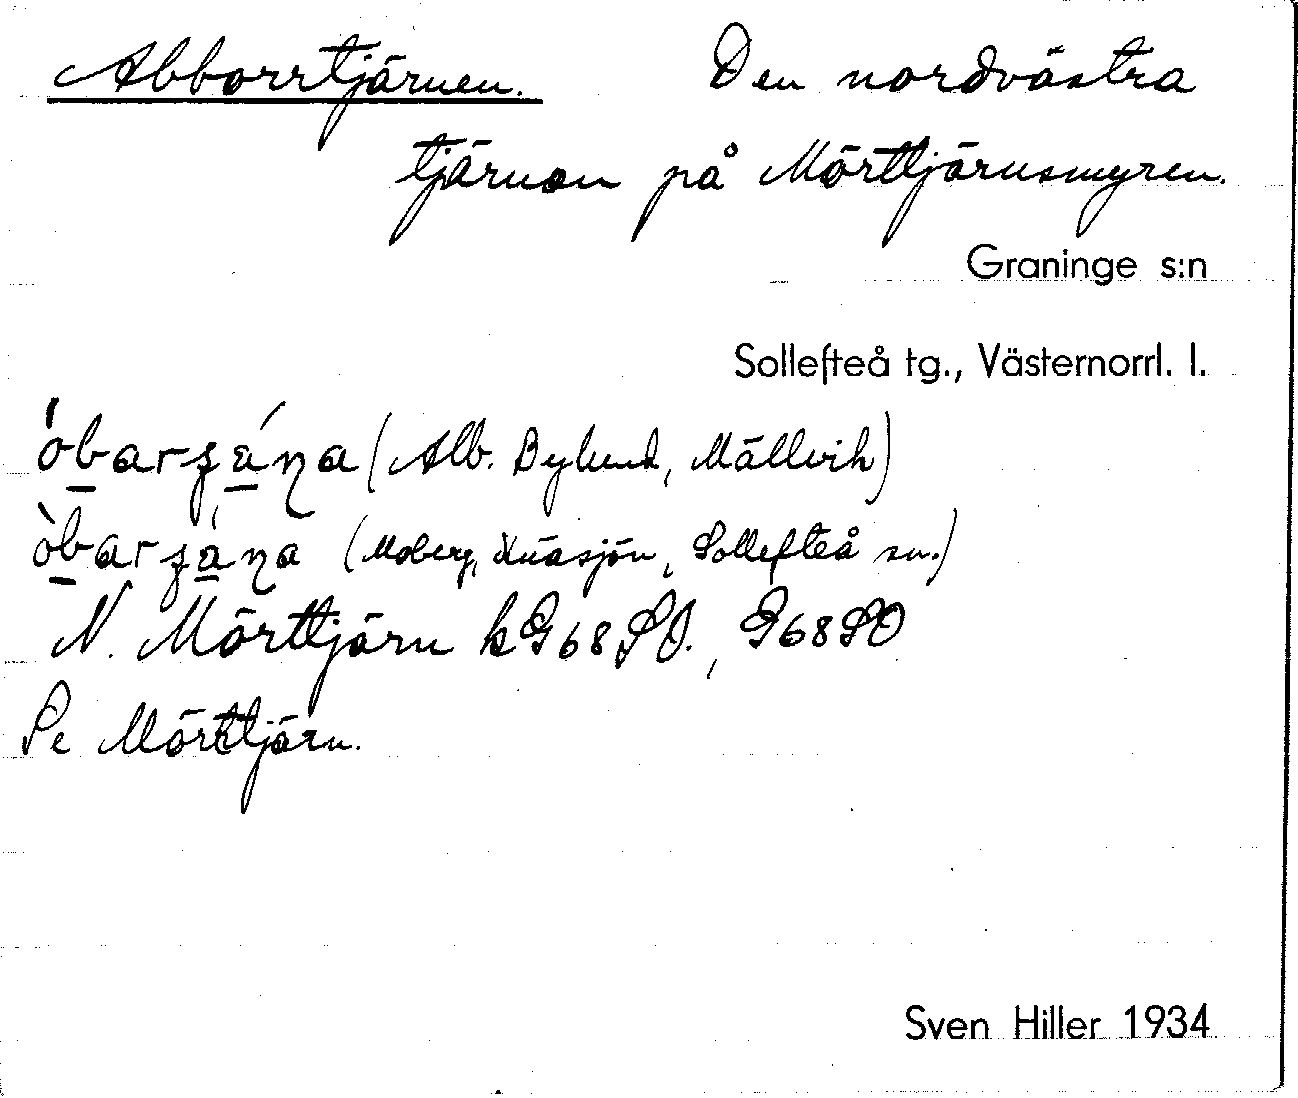 Abborrtjärnen. Den nordvästra
tjärnen på Mörttjärnsmyren.
Graninge s:n
Sollefteå tg., Västernorrl. l.
(Alb. Bylund, Mällvik)
(Moberg, Knäsjön, Sollefteå sn.)
N. Mörttjärn k G68SO., G68SO
Se Mörttjärn.
Sven Hiller 1934